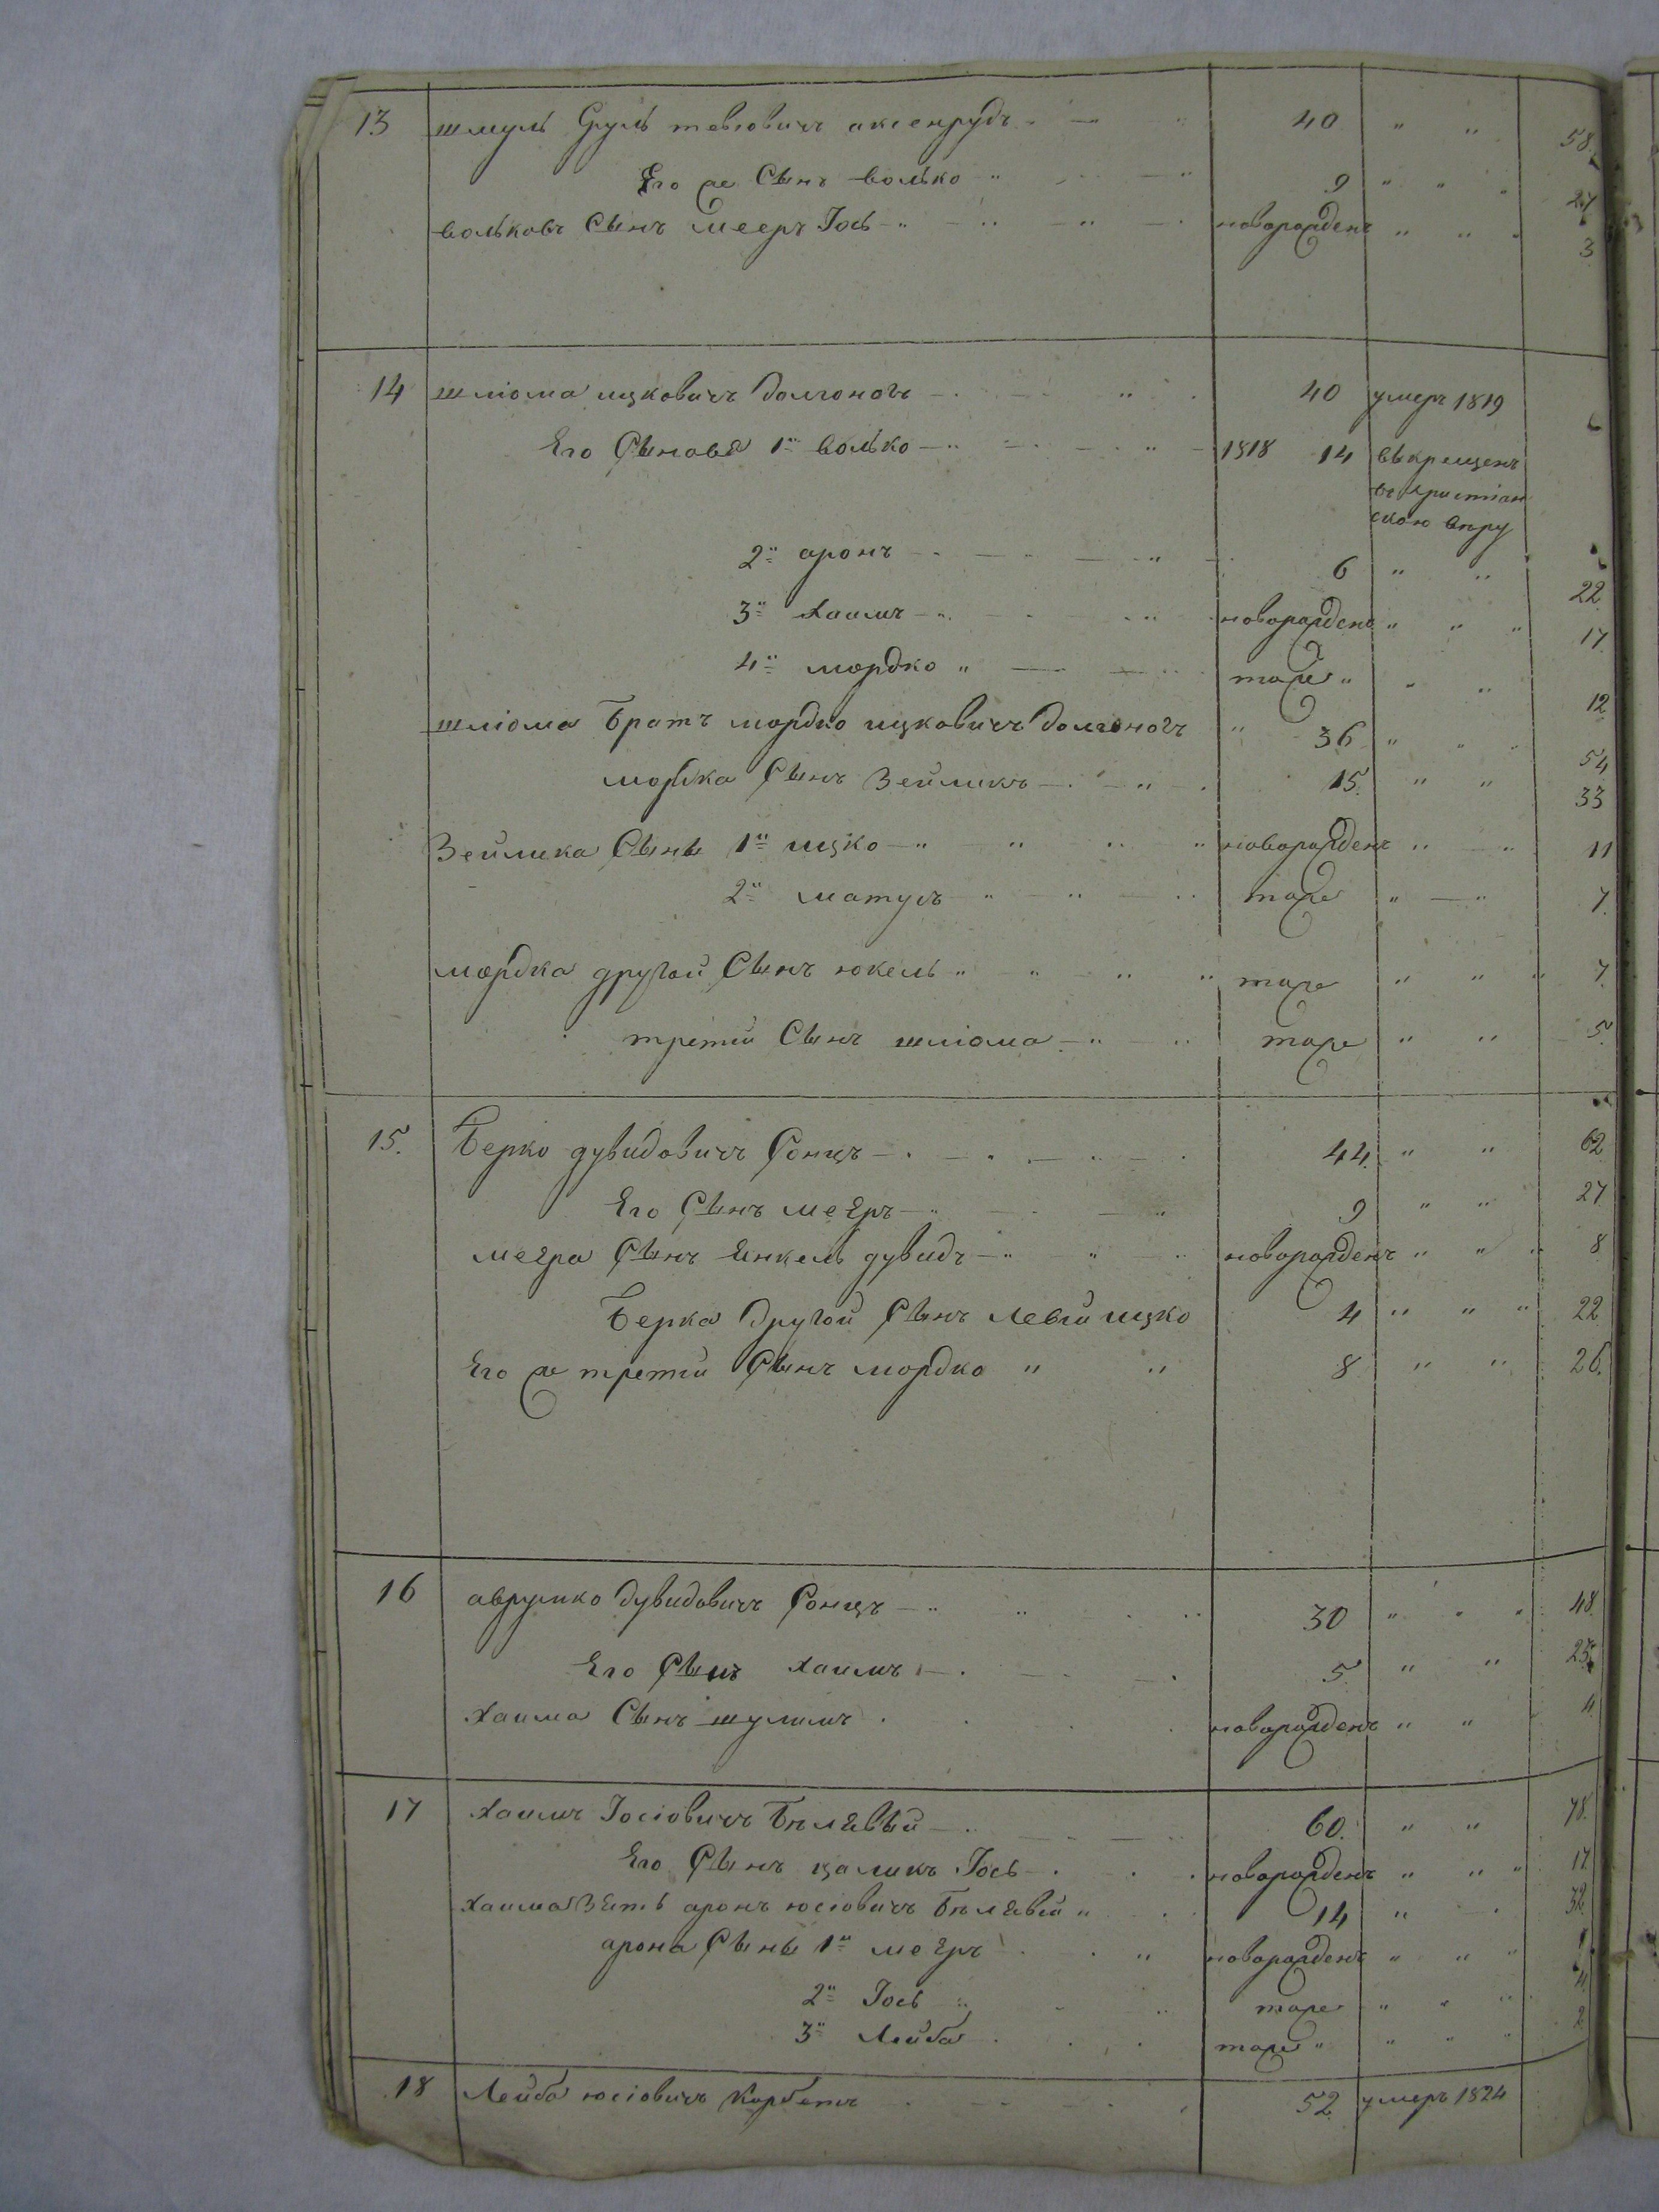 13 шмуль Сруль тевіовичъ аксенрудъ 40 " " 58.
Его же Сынъ волько " 9 " " " 27
вольковъ Сынъ мееръ Іось новорожденъ " " " 3
14 шліома ицковичъ долгоногъ 40 умеръ 1819
Его Сыновя 1й волько 1818 14 выкрещенъ
въ християн
скою вѣру
2й аронъ 6 " " 22.
3й хаимъ новорожденъ " " " 17
4й мордко " тоже " " " 12
шліома братъ мордко ицковичъ долгоногъ " 36 " " " 54
мордка Сынъ Зейликъ 15. " " 33
Зейлика Сыны 1й ицко новорожденъ " " 11
2й матусъ тоже " " 7.
мордка другой Сынъ юкель " " " " тоже " " " 7.
третій Сынъ шліома тоже " " 5.
15. Берко дувидовичъ Сонцъ 44. " " 62
Его Сынъ меэръ 9 " " 27
меэра Сынъ янкель дувидъ новорожденъ " " " 8
Берка другой Сынъ левій ицко 4 " " " 22
Его же третій Сынъ мордко " " 8 " " 26.
16 аврумко дувидовичъ Сонцъ 30 " " " 48
Его Сынъ хаимъ 5. " " 23
хаима Сынъ шулимъ новорожденъ " " 4
17 хаимъ Іосіовичъ Бѣлявый 60. " " 78.
Его Сынъ цаликъ Іось новорожденъ " " " 17
хаима Зять аронъ юсіовичъ Бѣлявій " 14 " 32.
арона Сыны 1й меэръ новорожденъ " " "
2й Іось тоже " " "
3й Лейба тоже " " " " 2
18 Лейба юсіовичъ 52 умеръ 1824